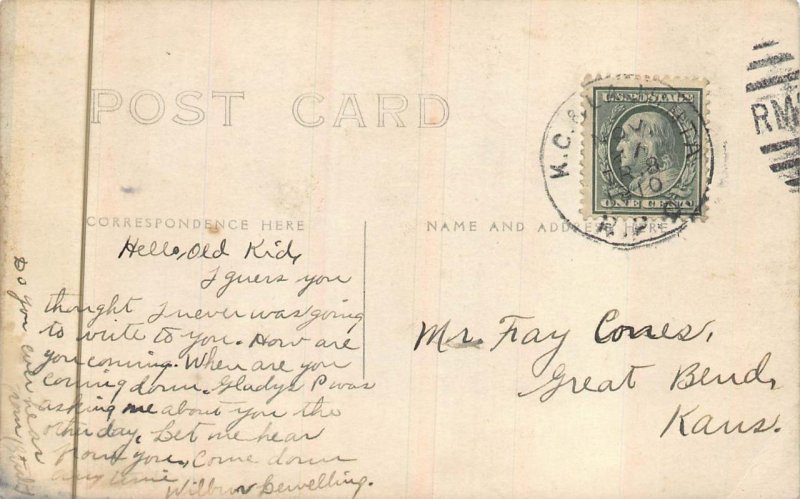 POST CARD
CORRESPONDENCE HERE
NAME AND ADDRESS HERE
U.S. POSTAGE
ONE CENT
K.C. & LA JUNTA
NOV
17
1910
R.P.O.
RM
Hello, Old Kid,
I guess you
thought I never was going
to write to you. How are
you coming. When are you
coming down. Gladys P was
asking me about you the
other day. Let me hear
from you, Come down
any time
Wilbur Lewelling.
Do you ever hear
from
Mr. Fay Cones,
Great Bend,
Kans.